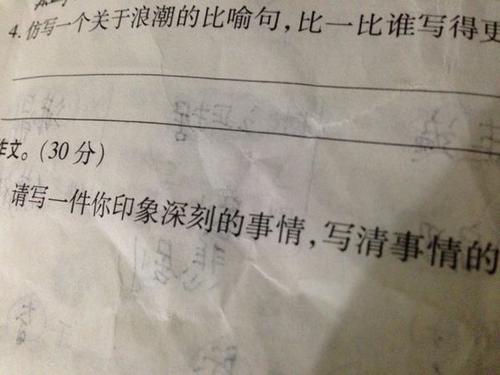 4. 仿写一个关于浪潮的比喻句，比一比谁写得更
作文。(30分)
请写一件你印象深刻的事情，写清事情的